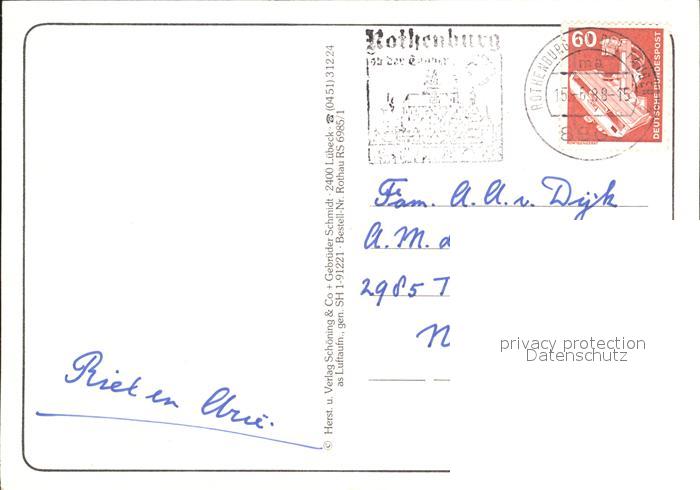 Rothenburg
ob der Tauber
60
DEUTSCHE BUNDESPOST
Fam. A. A. v. Dijk
A. M. d
2985 T
N
privacy protection
Datenschutz
Riet en Arie.
© Herst. u. Verlag Schöning & Co + Gebrüder Schmidt · 2400 Lübeck · ☎ (0451) 31224
as Luftaufn., gen. SH 1-91221 · Bestell-Nr. Rothau RS 6985/1